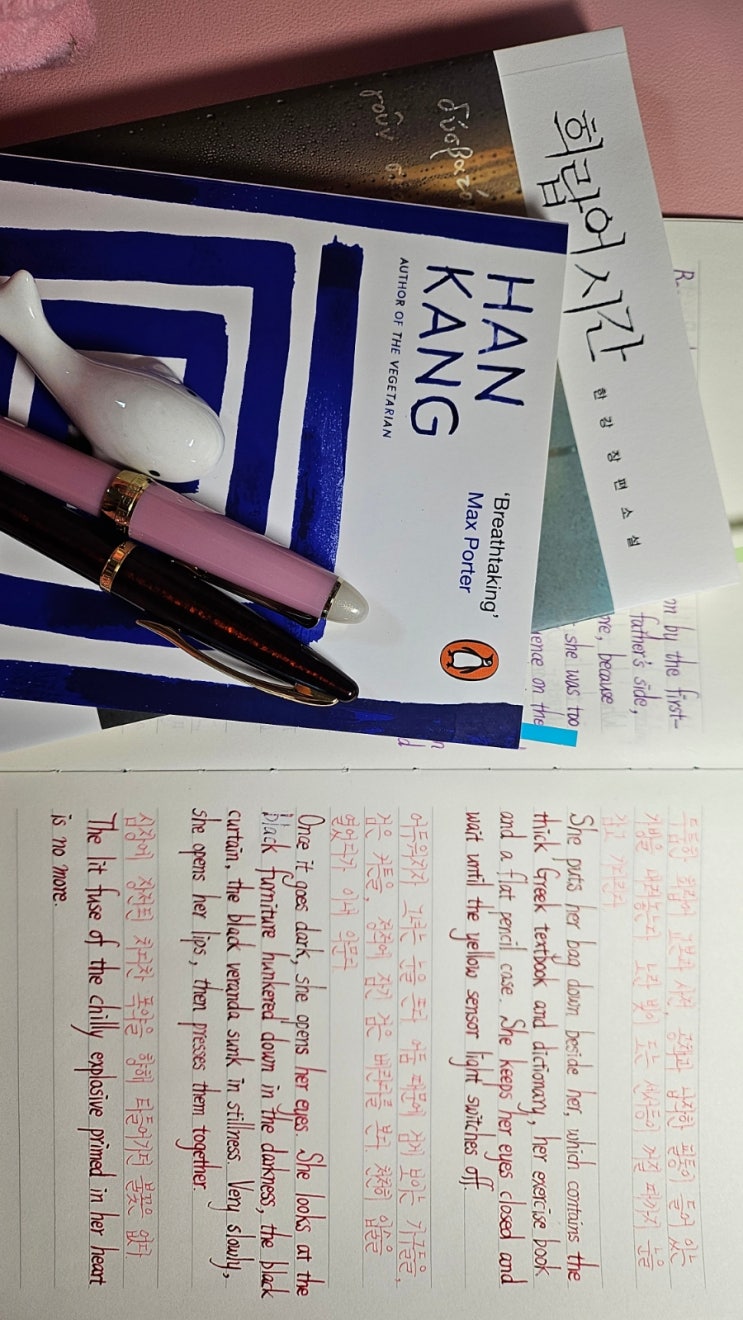 희랍어 시간
한강 장편소설
HAN
KANG
AUTHOR OF THE VEGETARIAN
'Breathtaking'
Max Porter
R.
by the first-
father's side,
because
she was too
on the
두툼한 희랍어 교본과 사전, 공책과 납작한 필통이 들어 있는
가방을 내려놓는다. 노란 빛이 도는 센서등이 꺼질 때까지 눈을
감고 기다린다.
She puts her bag down beside her, which contains the
thick Greek textbook and dictionary, her exercise book
and a flat pencil case. She keeps her eyes closed and
wait until the yellow sensor light switches off.
어두워지자 그녀는 눈을 뜬다. 어둠 때문에 검게 보이는 가구들,
검은 커튼을, 정적에 잠긴 검은 베란다를 본다. 천천히 입술을
열었다가 이내 악문다.
Once it goes dark, she opens her eyes. She looks at the
black furniture hunkered down in the darkness, the black
curtain, the black veranda sunk in stillness. Very slowly,
she opens her lips, then presses them together.
심장에 장전된 차디찬 폭약을 향해 타들어가던 불꽃은 없다.
The lit fuse of the chilly explosive primed in her heart
is no more.